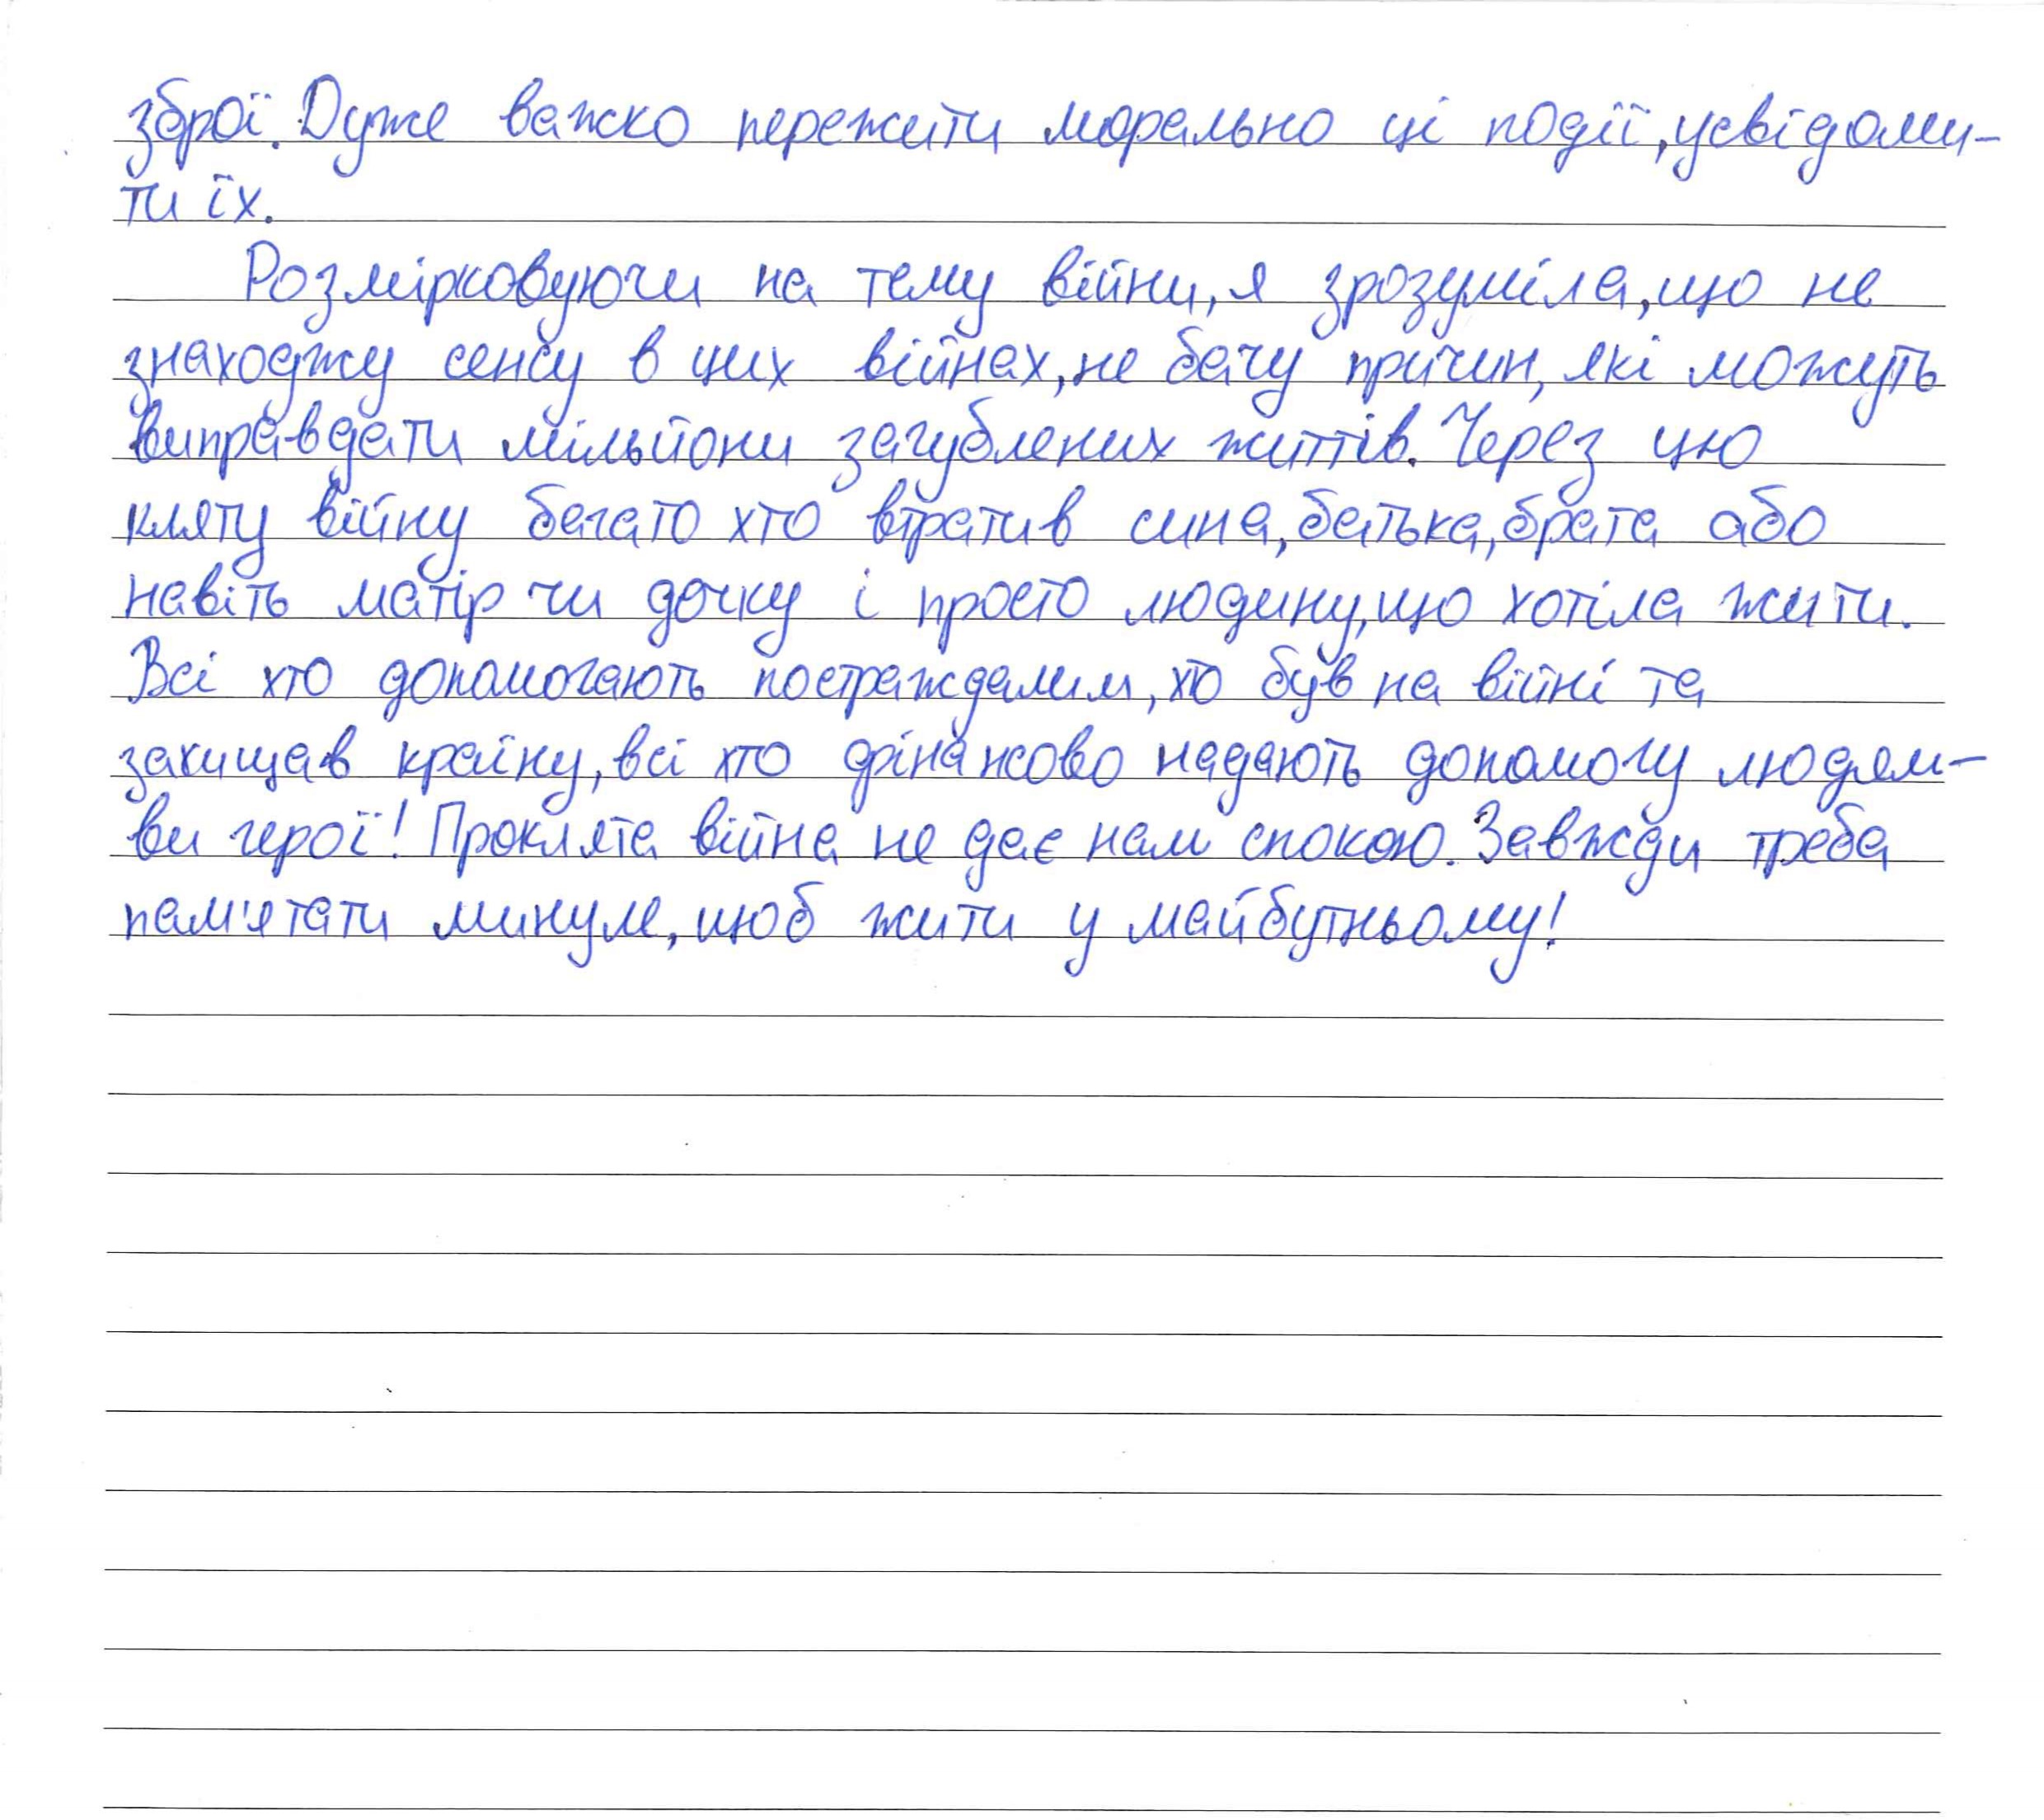 зброї. Дуже важко пережити морально ці події, усвідоми-
ти їх.
Розмірковуючи на тему війни, я зрозуміла, що не
знаходжу сенсу в цих війнах, не бачу причин, які можуть
виправдати мільйони загублених життів. Через цю
кляту війну багато хто втратив сина, батька, брата або
навіть матір чи дочку і просто людину, що хотіла жити.
Всі хто допомогають постраждалим, хто був на війні та
захищав країну, всі хто фінансово надають допомогу людям-
ви герої! Проклята війна не дає нам спокою. Завжди треба
пам'ятати минуле, щоб жити у майбутньому!